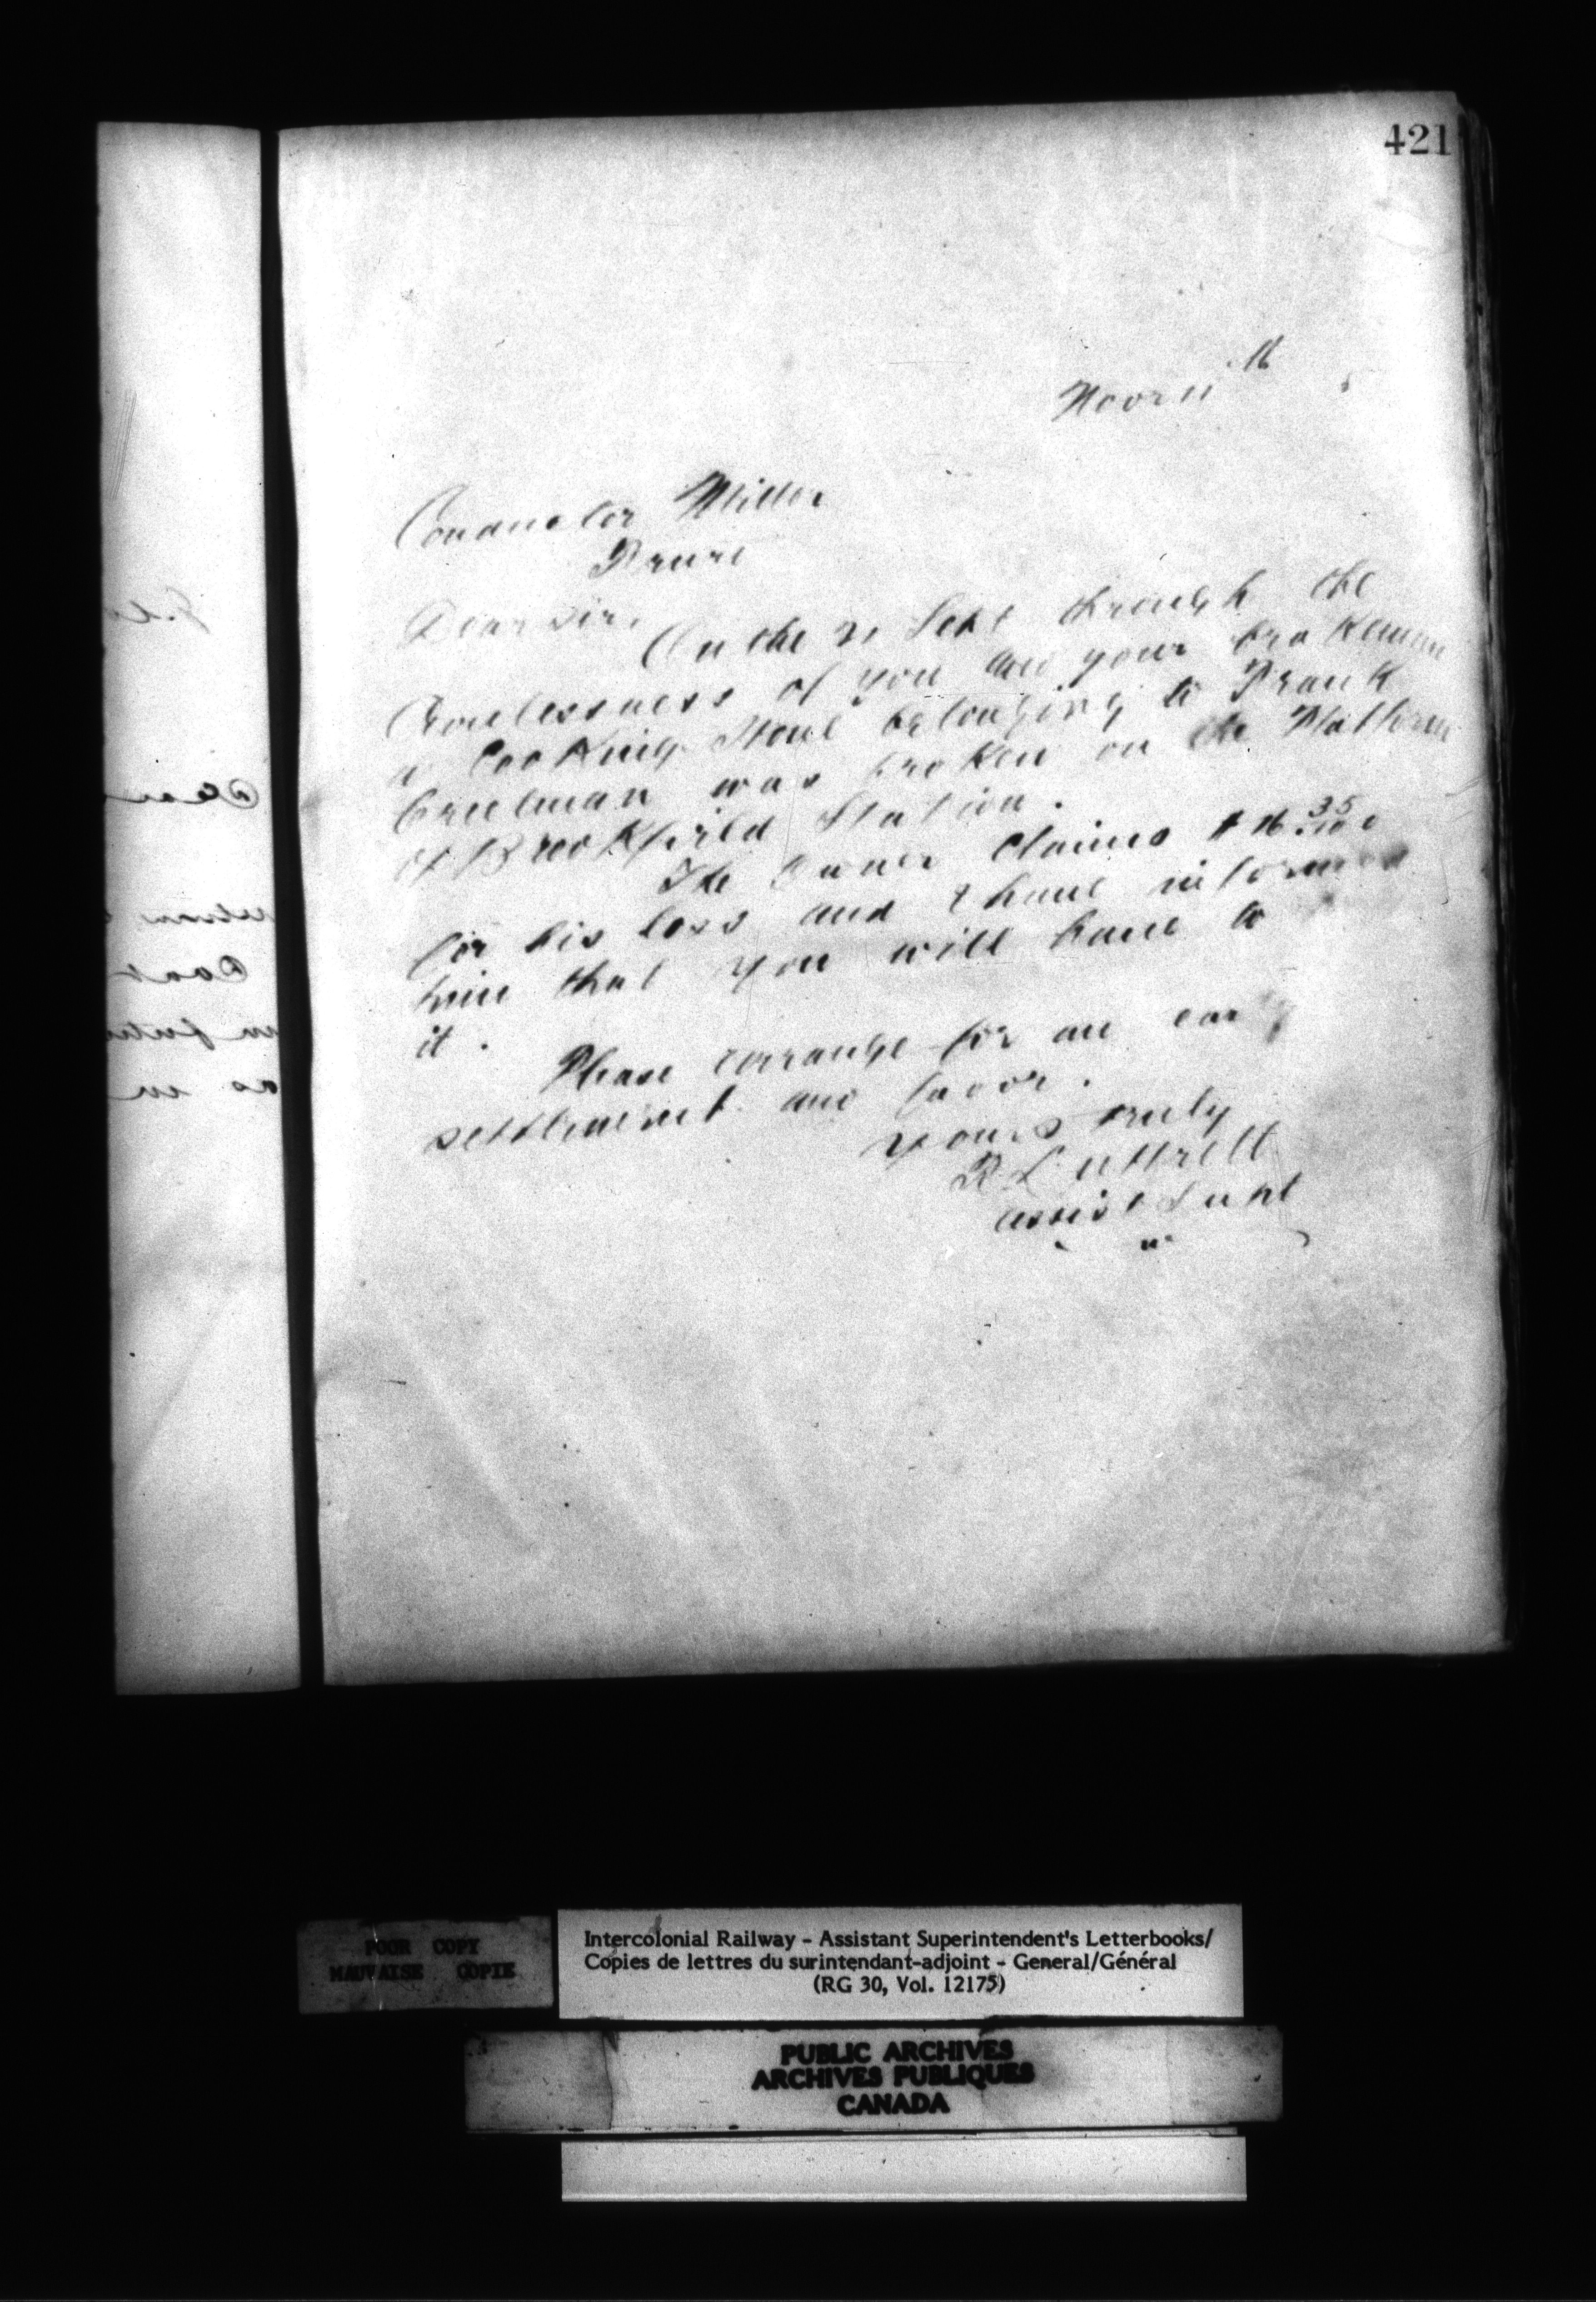 421
Conductor Miller
Truro
Dear Sir,
On the 21 Sept through the
Carelessness of you and your brakeman
a Cooking Stove belonging to Frank
Creelman was broken on the Platform
of Brookfield Station.
The Owner Claims $16.35
for his loss and I have informed
him that you will have to
it.
Please arrange for an early
settlement and favor.
Yours truly
R Luttrell
Assist Supt
POOR COPY
MAUVAISE COPIE
Intercolonial Railway - Assistant Superintendent's Letterbooks/
Copies de lettres du surintendant-adjoint - General/Général
(RG 30, Vol. 12175)
PUBLIC ARCHIVES
ARCHIVES PUBLIQUES
CANADA